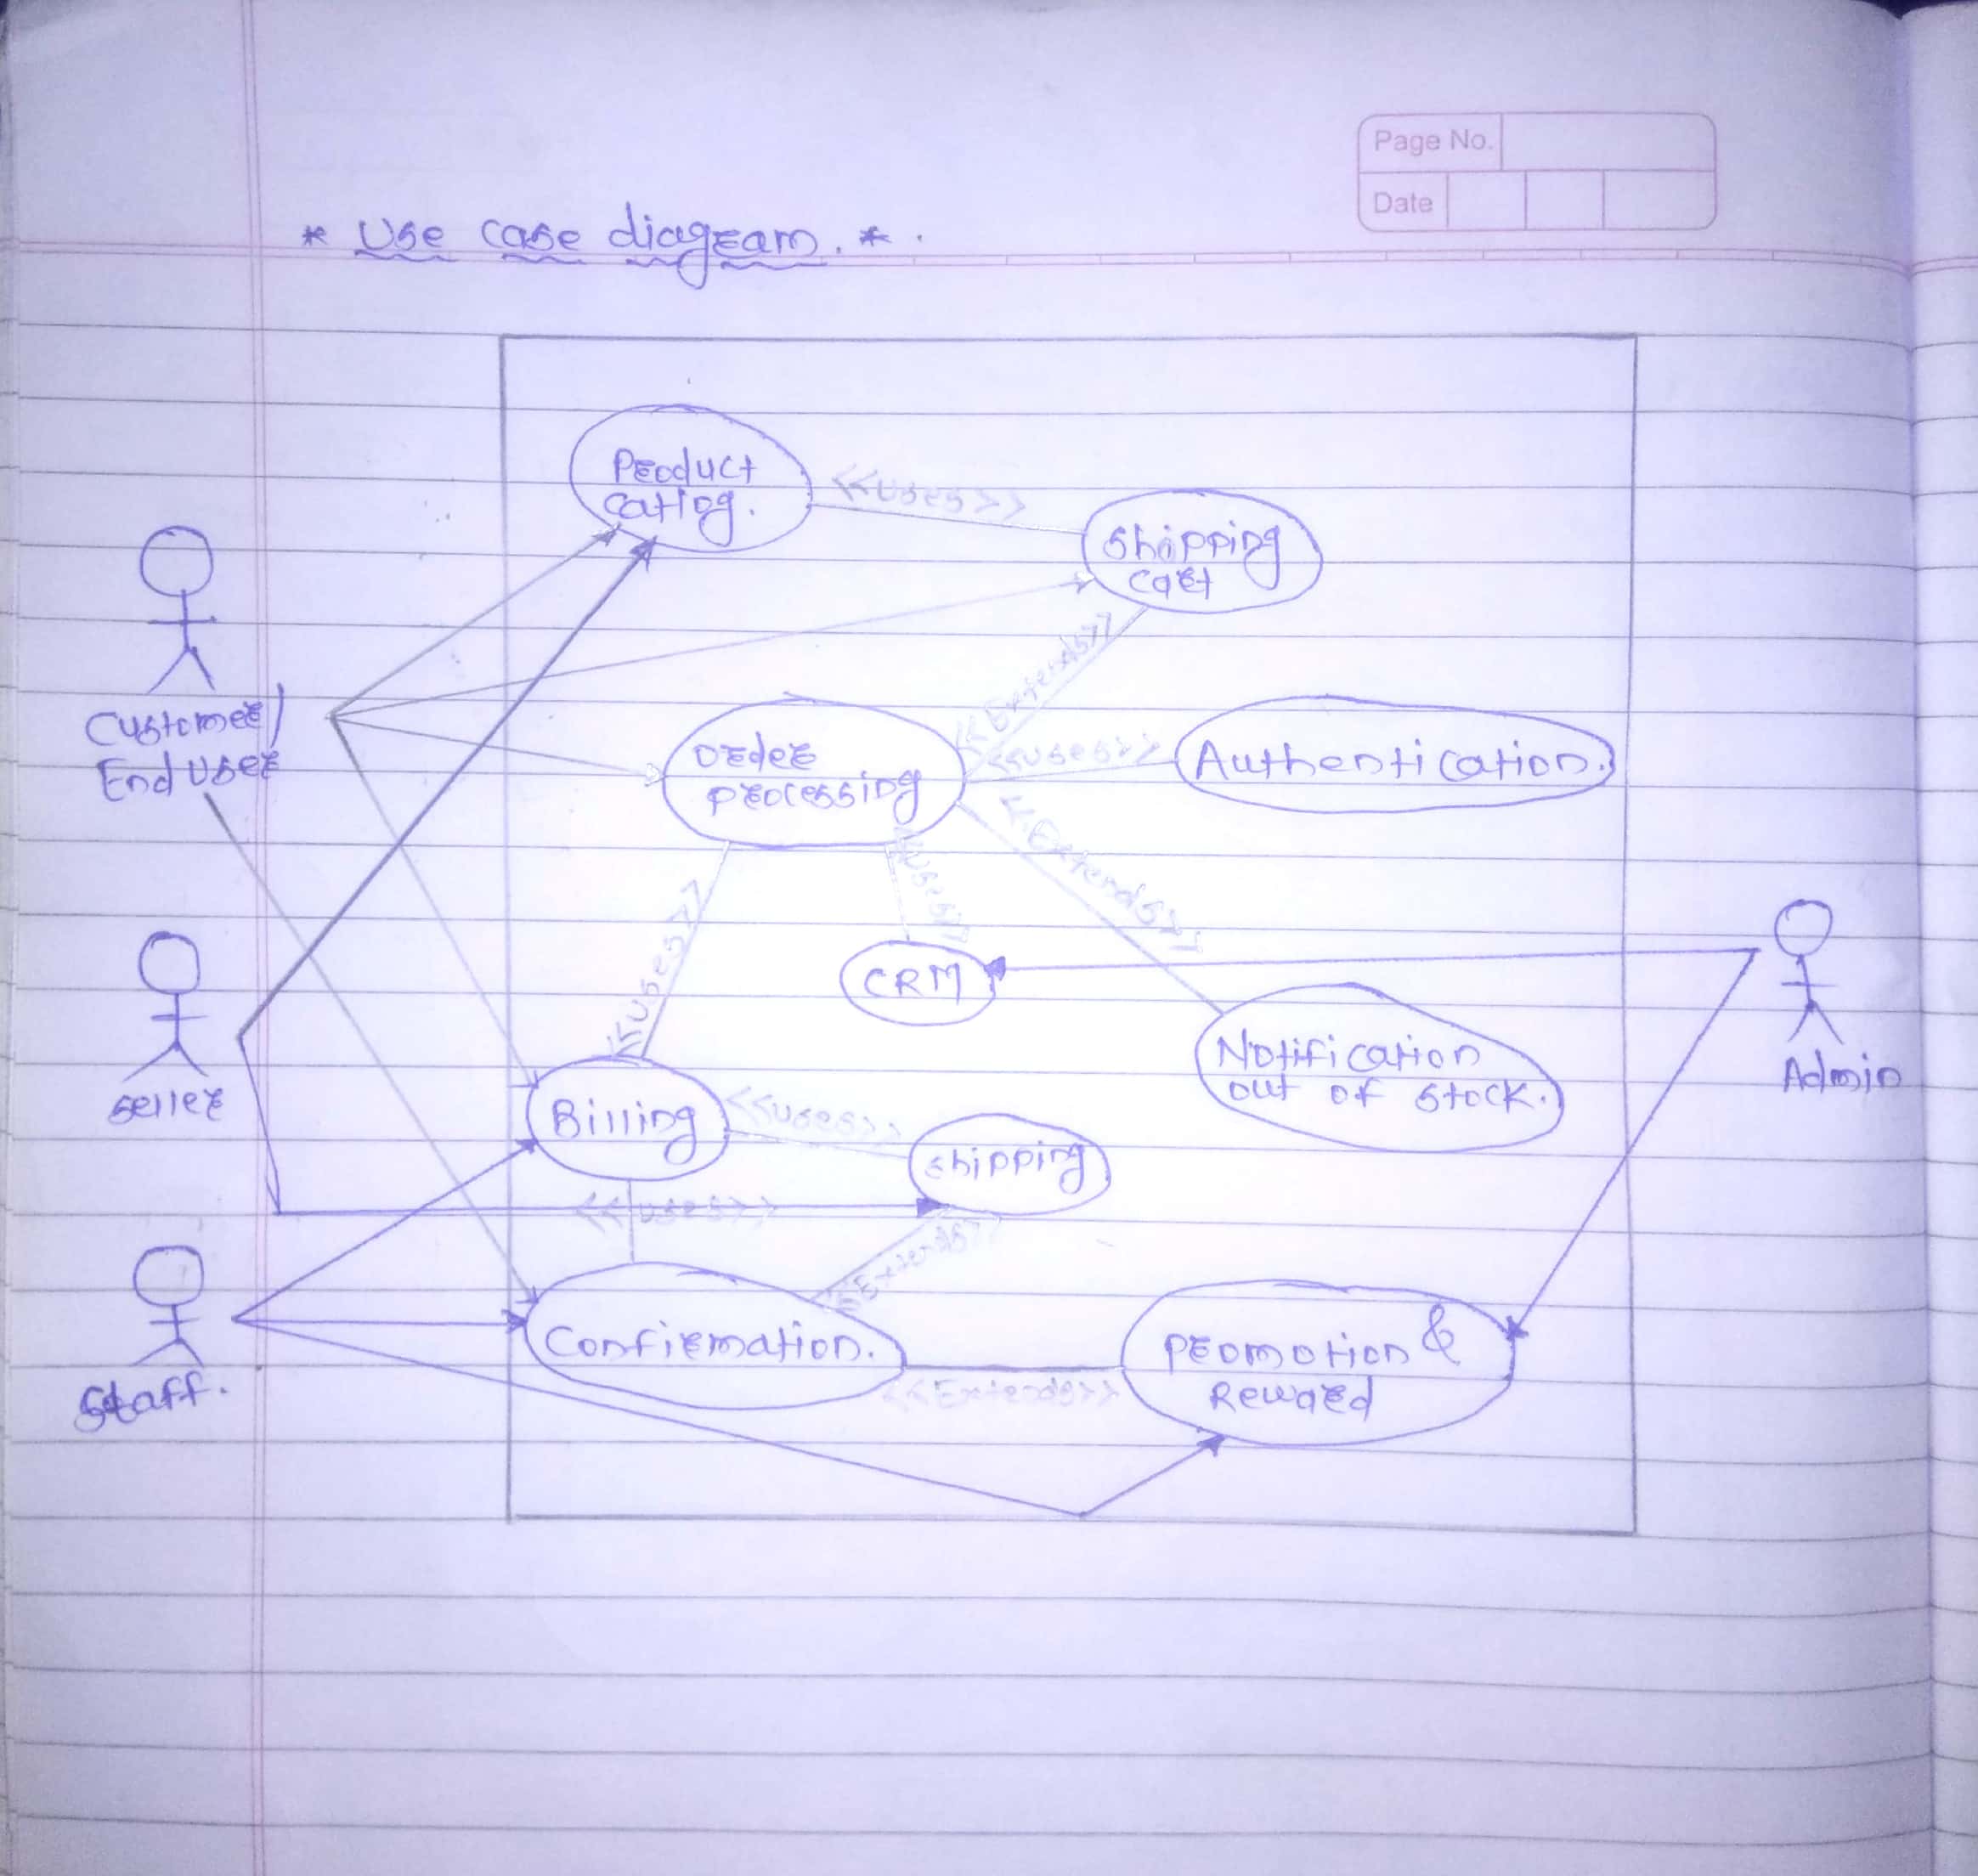 Page No.
Date
* Use case diagram. *
Product
catlog.
<<uses>>
Shipping
cart
<<Extends>>
Customer/
End user
Order
processing
<<uses>>
Authentication.
<<Extends>>
<<uses>>
<<uses>>
CRM
Seller
Notification
out of stock.
Admin
Billing
<<uses>>
shipping
<<uses>>
<<Extends>>
Staff.
Confirmation.
Promotion &
Reward
<<Extends>>